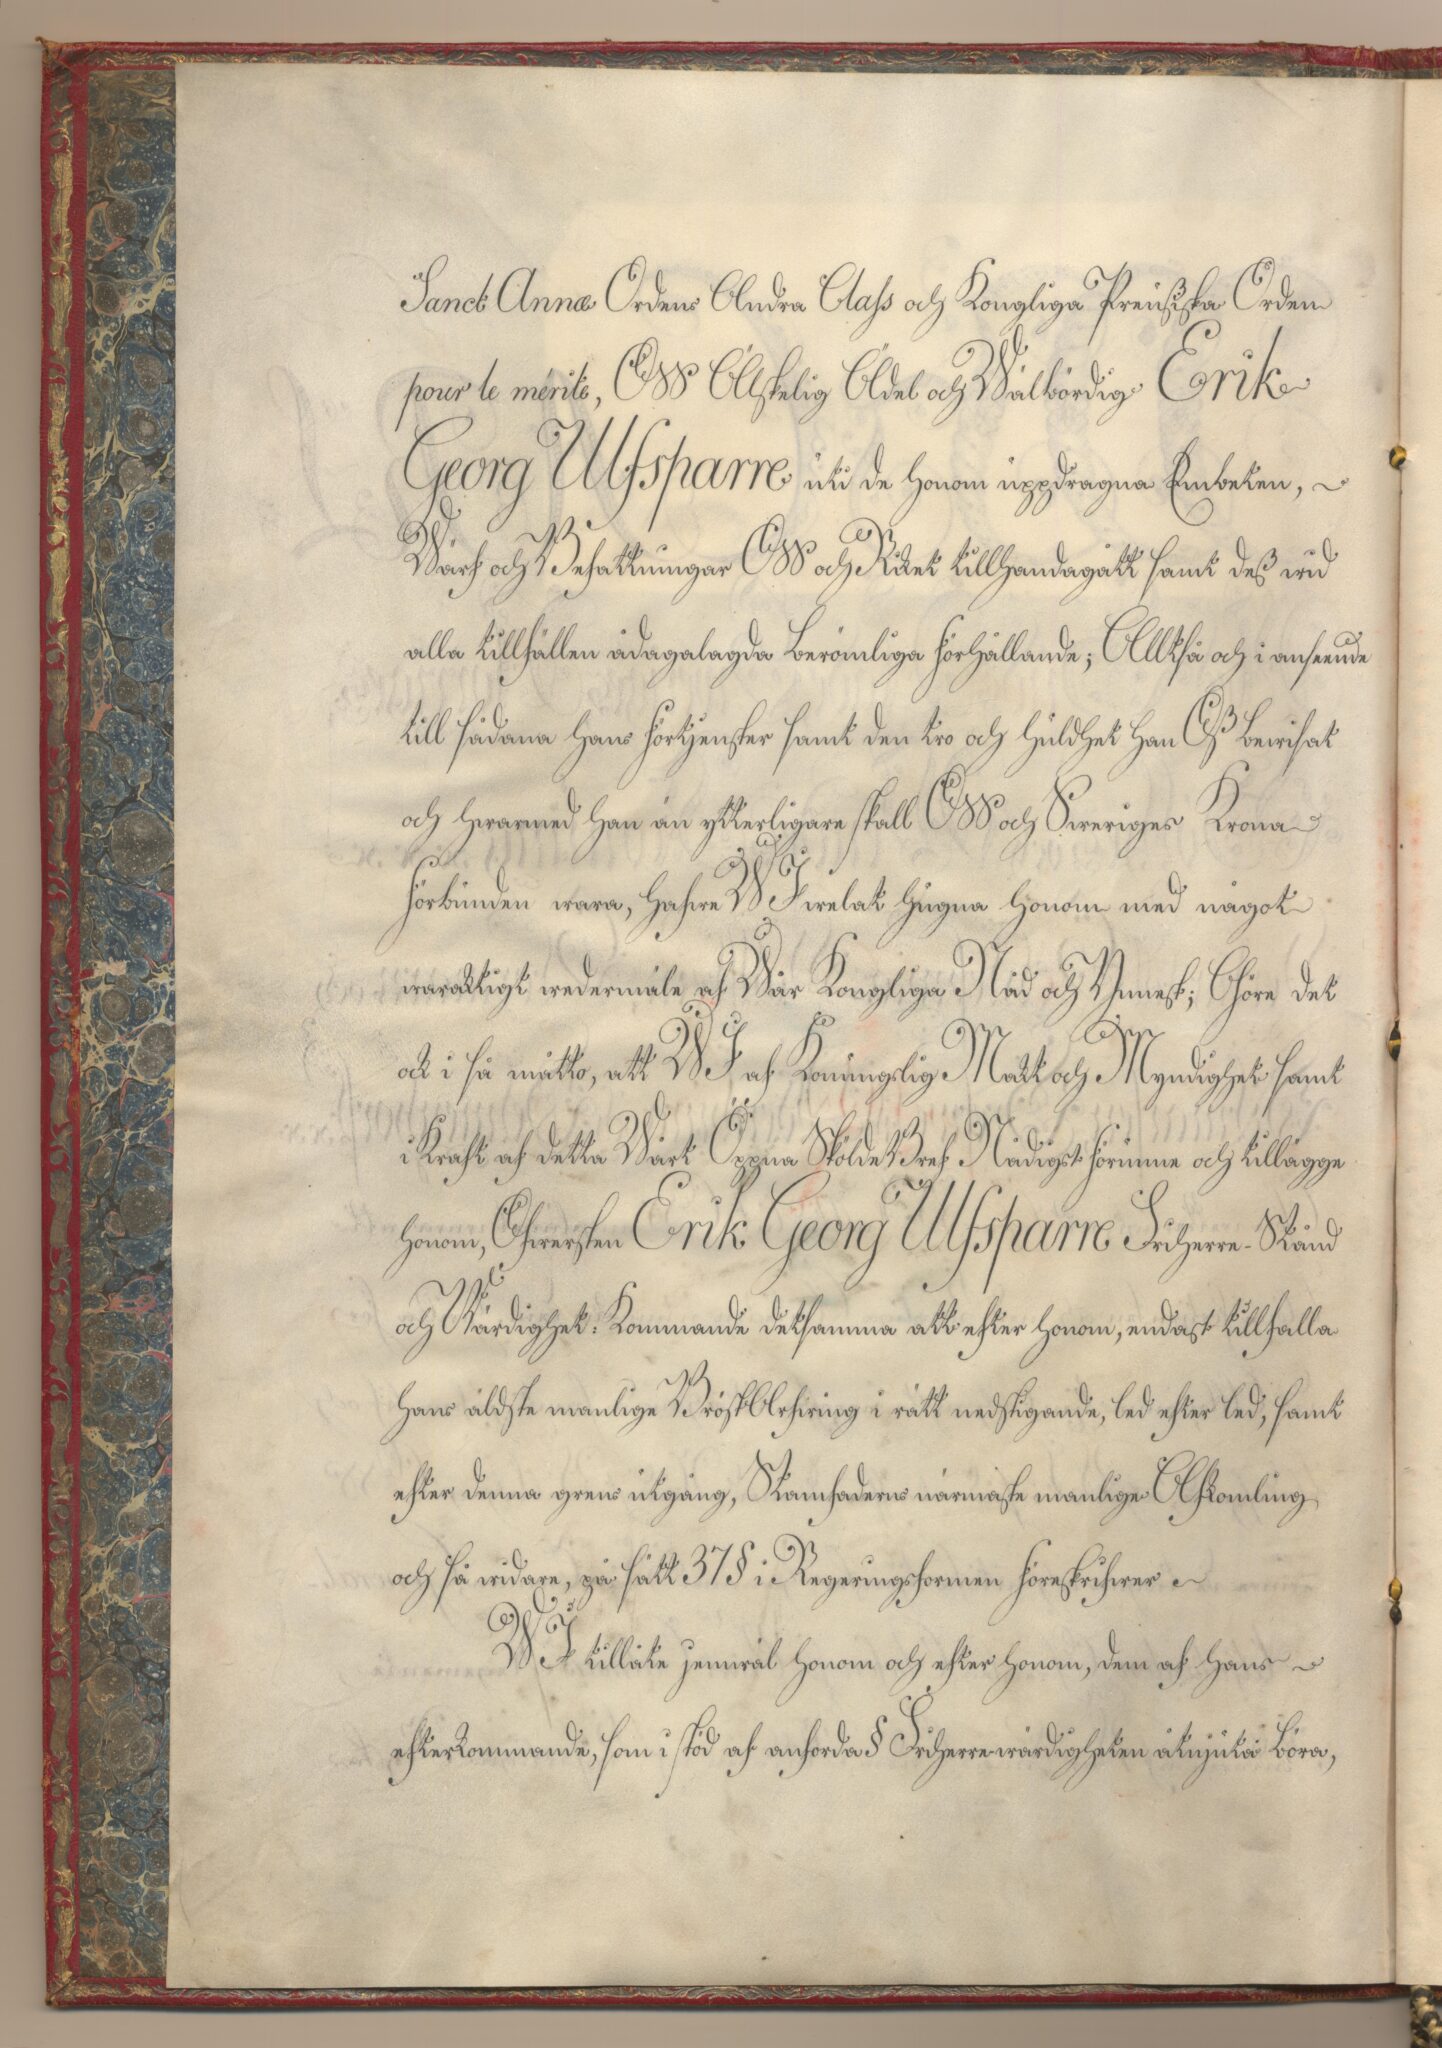 Sanct Annæ Ordens Andra Class och Kongliga Preussiska Orden
pour le mérite, Oss Älskelig Ädel och Wälbördig Erik
Georg Ulfsparre uti de honom uppdragna Embeten,
Wärf och Befattningar Oss och Riket tillhandagått samt dess wid
alla tillfällen ådagalagda berömliga förhållande; Alltså och i anseende
till sådana hans förtjenster samt den tro och huldhet han Oss bewisat
och hwarmed han än ytterligare skall Oss och Sweriges Krona
förbunden wara, hafwe WJ welat hugna honom med något
waraktigt wedermäle af Wår Kongliga Nåd och Ynnest; Göre det
ock i så måtto, att WJ af Konungslig Makt och Myndighet samt
i kraft af detta Wårt Öppna SköldeBref Nådigst förunne och tillägge
honom, Öfwersten Erik Georg Ulfsparre Friherre-Stånd
och Wärdighet: Kommande detsamma att efter honom, endast tillfalla
hans äldste manlige BröstArfwing i rätt nedstigande, led efter led, samt
efter denna grens utgång, Stamfaderns närmaste manlige Afkomling
och så widare, på sätt 37 § i Regeringsformen föreskrifwer
WJ tillåte jemwäl honom och efter honom, dem af hans
efterkommande, som i stöd af anförda § Friherrewärdigheten åtnjuta böra,